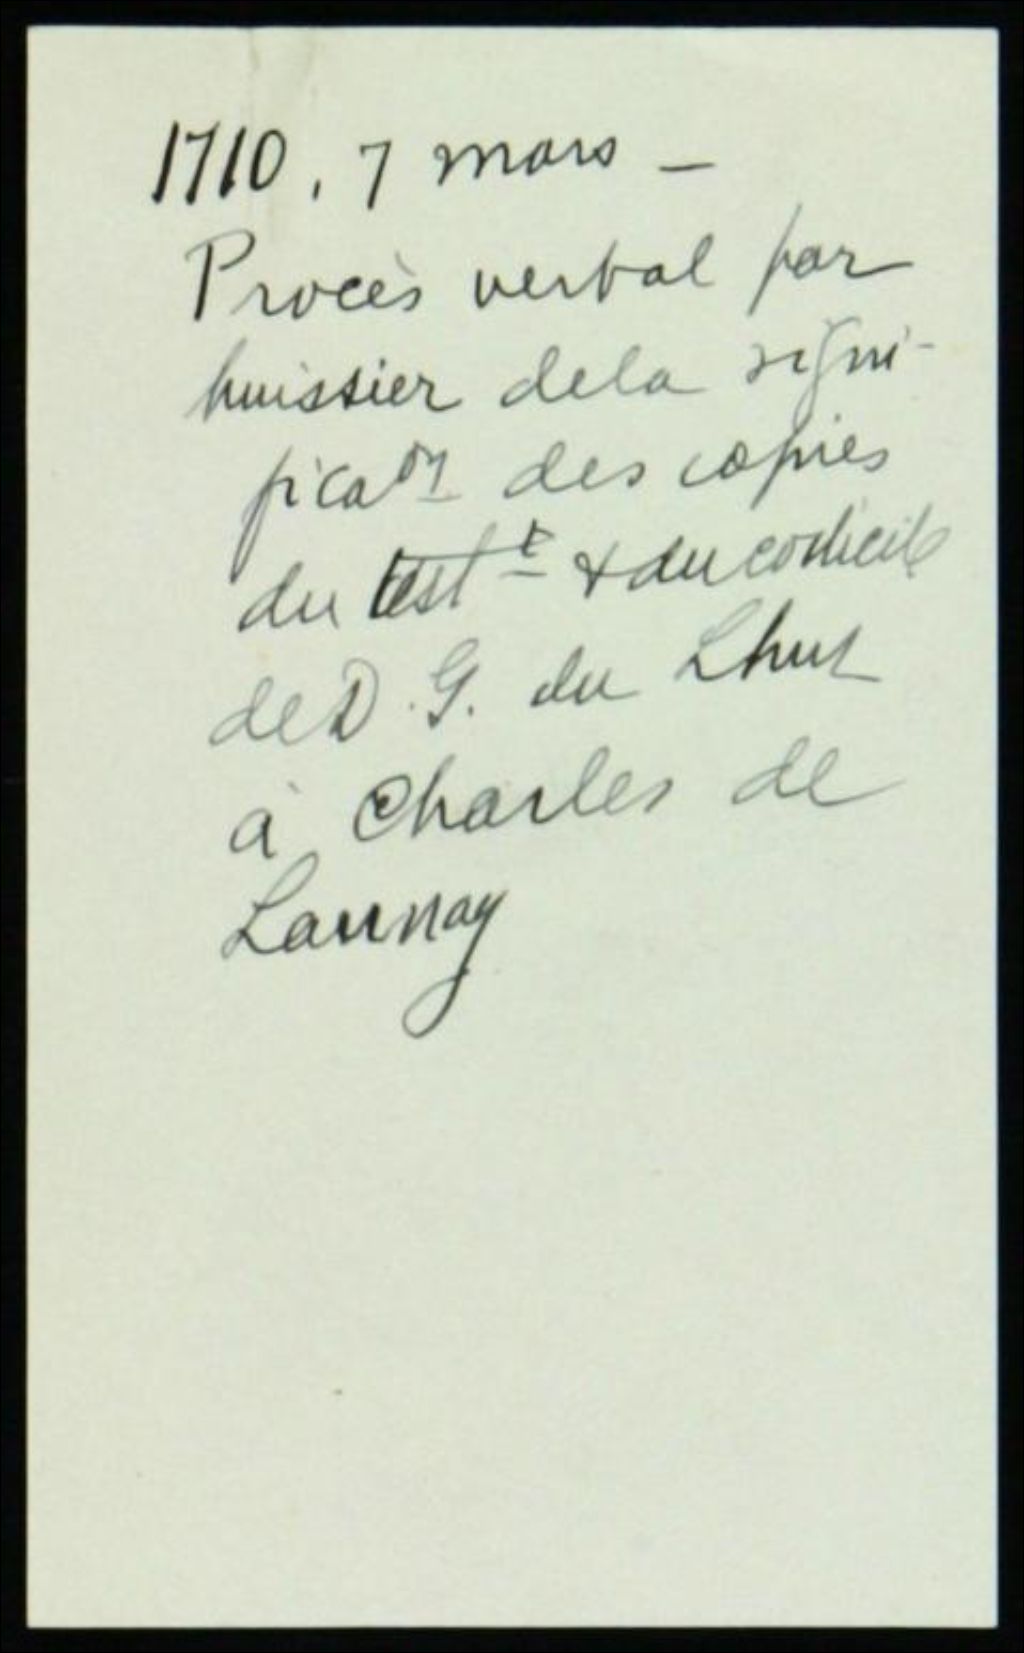 1710, 7 mars -
Procès verbal par
huissier de la signi-
ficaon des copies
du testt & du codicile
de D. G. du Lhut
à Charles de
Launay